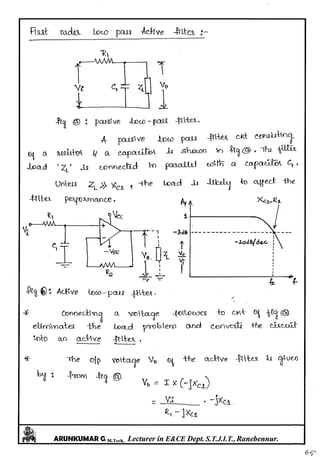 First order low pass Active filter :-
R1
Vi
C1
ZL
Vo
fig ⓐ : passive low-pass filter.
A passive low pass filter ckt consisting
of a resistor & a capacitor is shown in fig ⓐ. The filter
load 'ZL' is connected in parallel with a capacitor C1.
Unless ZL >> XC1, the load is likely to affect the
filter performance.
R1
+Vcc
Vi
C1
-VEE
R2
Vo
ZL
Av
XC1=R1
1
-3dB
-20dB/dec
Vo
Vi
fc
f
fig ⓑ: Active low-pass filter.
* Connecting a voltage follower to ckt of fig ⓐ
eliminates the load problem and converts the circuit
into an active filter.
* The o/p voltage Vo of the active filter is given
by : from fig ⓐ.
Vo = I x (-jXC1)
= Vi / R1 - jXC1 . -jXC1
ARUNKUMAR G M.Tech, Lecturer in E&CE Dept. S.T.J.I.T., Ranebennur.
65